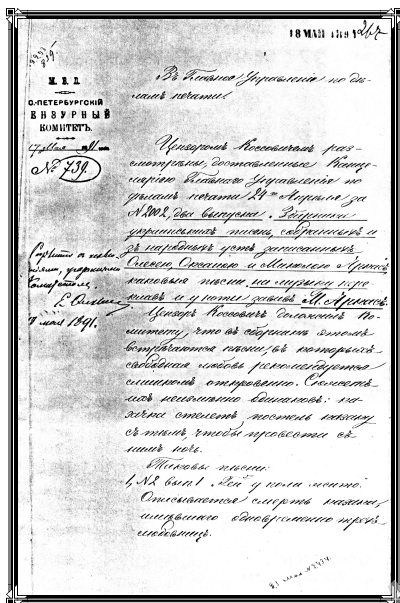 18 МАЙ 1891
267
М. В. Д.
С.-ПЕТЕРБУРГСКІЙ
ЦЕНЗУРНЫЙ
КОМИТЕТЪ.
17 Мая 1891
№ 739.
Въ Главное Управленіе по дѣ-
ламъ печати.
Цензоромъ Коссовичемъ раз-
смотрѣны, доставленные Канце-
ляріею Главнаго Управленія по
дѣламъ печати 24го Апрѣля за
№ 2002, два выпуска "Збірныкъ
украинськихъ писень, собранныхъ и
зъ народныхъ устъ записанныхъ
Олесею, Оксаною и Миколою Аркасъ
каковыя пѣсни на музыку пере-
клавъ и у ноты завивъ М. Аркасъ.
Цензоръ Коссовичъ доложилъ Ко-
митету, что въ сборникѣ этомъ
встрѣчаются пѣсни, въ которыхъ
свободная любовь рекомендуется
слишкомъ откровенно. Сюжетъ
ихъ неизмѣнно одинаковъ: ка-
зачка стелетъ постель казаку
съ тѣмъ, чтобы провести съ
нимъ ночь.
Таковы пѣсни:
1, №2 вып. 1 "Гей у поли могыло"
Описывается смерть казака,
имѣвшаго одновременно трехъ
любовницъ.
мая 1891.